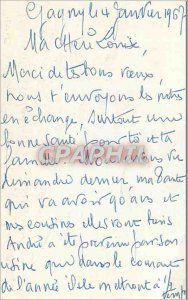 Gagny le 4 Janvier 1967
Ma chère Louise,
Merci de tes bons vœux,
nous t'envoyons les notres
en échange, surtout une
bonne santé pour toi et ta
famille. Nous avons vu
dimanche dernier, ma Tante
qui va avoir 90 ans et
nos cousins elles vont bien
André a été prévenu par son
usine que dans le courant
de l'année il le mettront à la